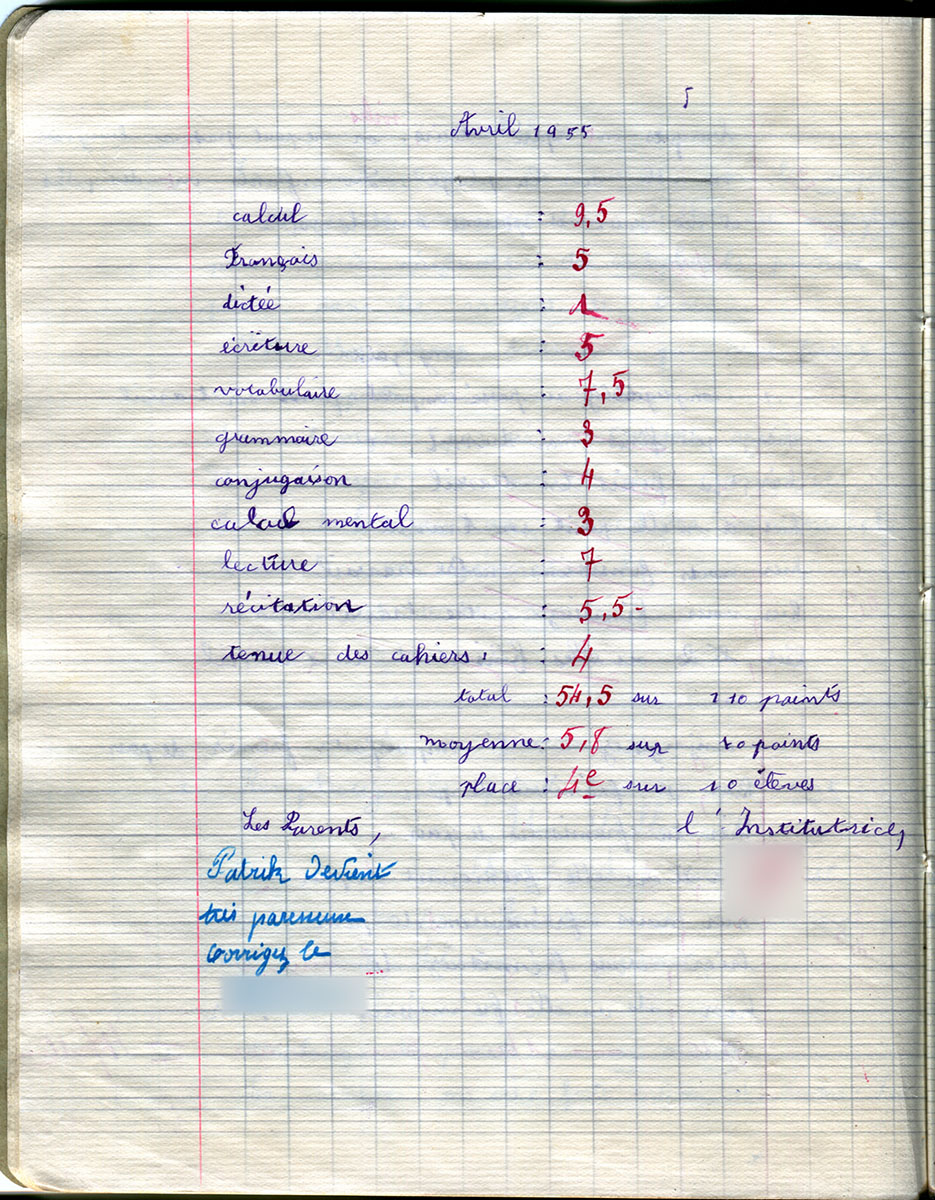 5
Avril 1955
calcul : 9,5
Français : 5
dictée : 1
écriture : 5
vocabulaire : 7,5
grammaire : 3
conjugaison : 4
calcul mental : 3
lecture : 7
récitation : 5,5-
tenue des cahiers : : 4
total : 54,5 sur 110 points
moyenne : 5,8 sur 10 points
place : 4e sur 10 élèves
Les Parents, l'Institutrice,
Patrik Devient
très paresseuse
corrigez le